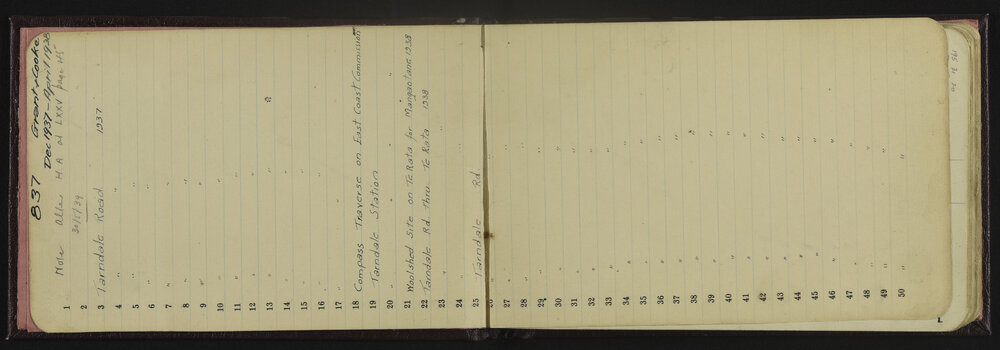 837 Grant & Cooke
Dec 1937 - April 1938
Note Allan H.A. Vol LXXV page 45
30/5/39
1
2
3 Tarndale Road 1937
4 " "
5 " "
6 " "
7 " "
8 " "
9 " "
10 " "
11 " "
12 " "
13 " "
14 " "
15 " "
16 " "
17 " "
18 Compass Traverse on East Coast Commission
19 Tarndale Station
20 " "
21 Woolshed Site on Te Rata for Mangaotane 1938
22 Tarndale Rd. thru Te Rata 1938
23 " "
24 " "
25 Tarndale Rd.
26 " "
27 " "
28 " "
29 " "
30 " "
31 " "
32 " "
33 " "
34 " "
35 " "
36 " "
37 " "
38 " "
39 " "
40 " "
41 " "
42 " "
43 " "
44 " "
45 " "
46 " "
47 " "
48 " "
49 " "
50 " "